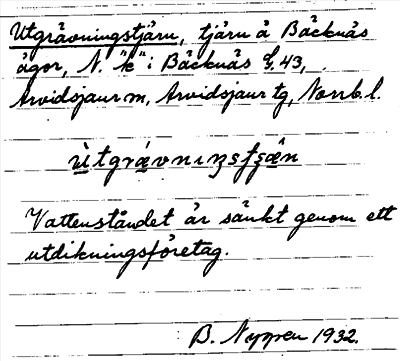 Utgrävningstjärn, tjärn å Bäcknäs
ägor, N. "k" i Bäcknäs 43,
Arvidsjaur sn, Arvidsjaur tg, Norrb. l.
Vattenståndet är sänkt genom ett
utdikningsföretag.
B. Nyppen 1932.